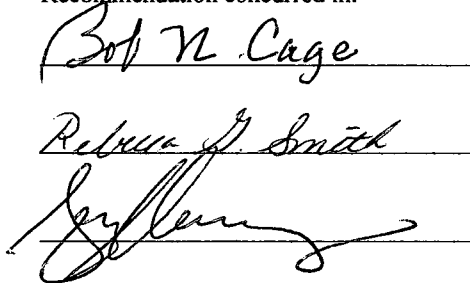 Recommendation concurred in:
Bob N. Cage
Rebecca G. Smith